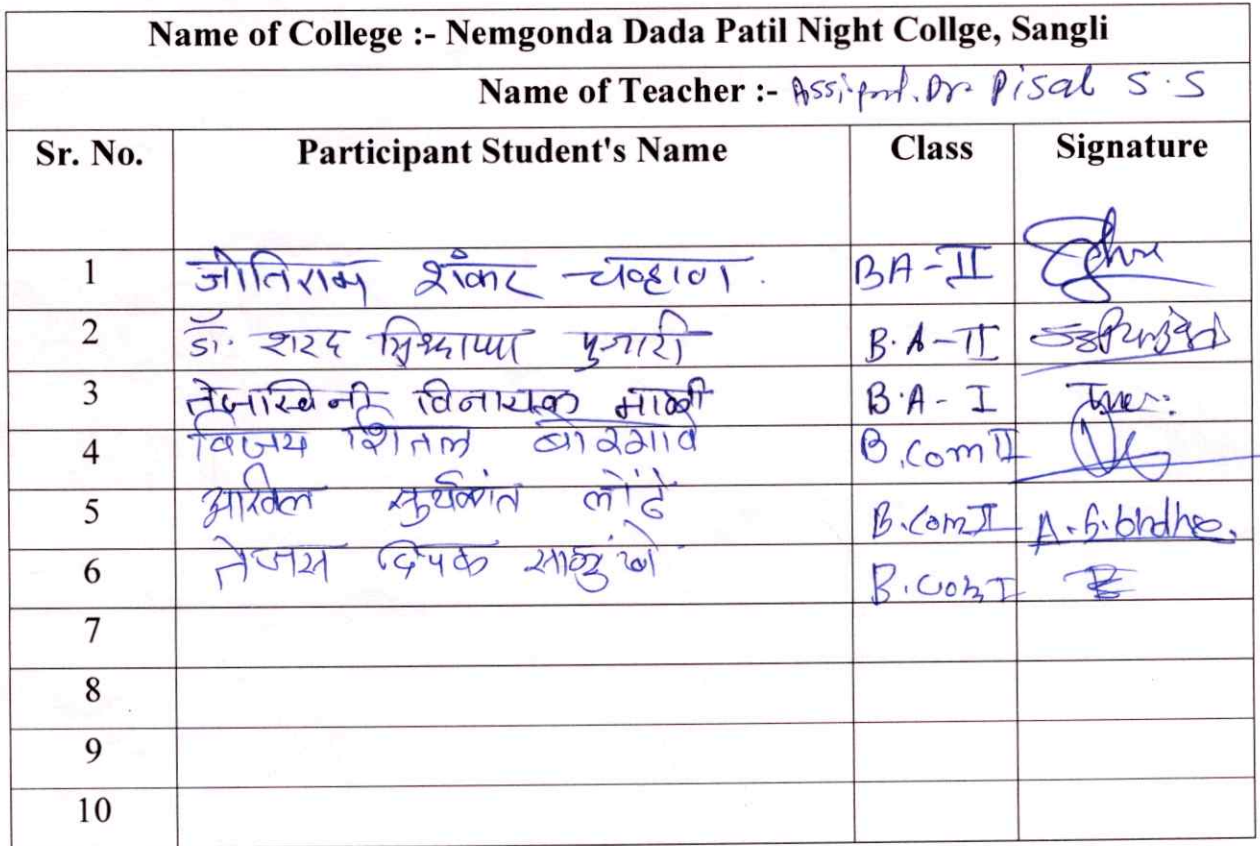 Name of College :- Nemgonda Dada Patil Night Collge, Sangli
Name of Teacher :- Assi. prof. Dr. Pisal S.S
Sr. No. Participant Student's Name Class Signature
1 जोतिराम शंकर चव्हाण. BA-II
2 डॉ. शरद सिध्दाप्पा पुजारी B.A-II
3 तेजस्विनी विनायक माळी B.A-I
4 विजय शितल बोरगावे B.com II
5 अखिल सुर्यकांत लोंढे B.com I
6 तेजस दिपक साळुंखे B.com I
7
8
9
10